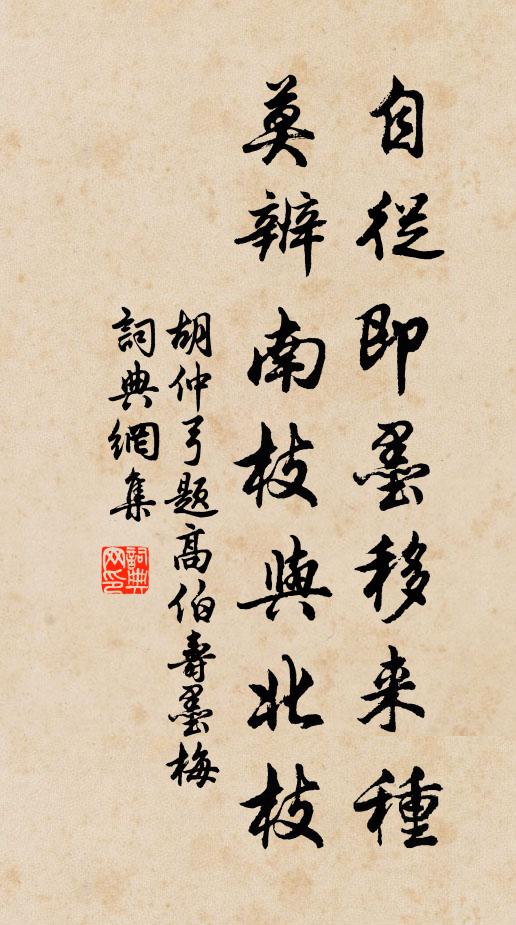 自從即墨移来種
莫辨南枝與北枝
胡仲弓題高伯壽墨梅
詞典網集
詞典
网印